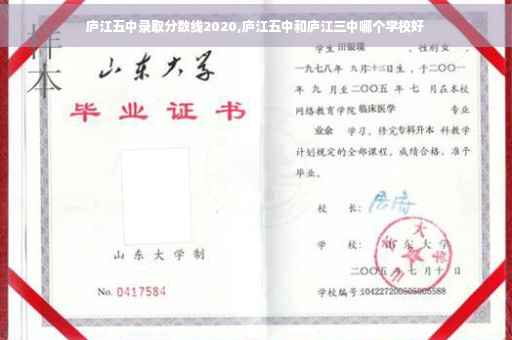 庐江五中录取分数线2020,庐江五中和庐江三中哪个学校好
样本
山东大学
毕业证书
山东大学制
No. 0417584
学生 田银瑞 ，性别女，
一九七八年 九月十三日生，于二〇〇一
年 九 月至二〇〇五 年 七 月在本校
网络教育学院 临床医学 专业
业余 学习，修完专科升本 科教学
计划规定的全部课程，成绩合格，准予
毕业。
校 长：
学 校：山东大学
二〇〇五年七月十日
学校编号:104227200505005588